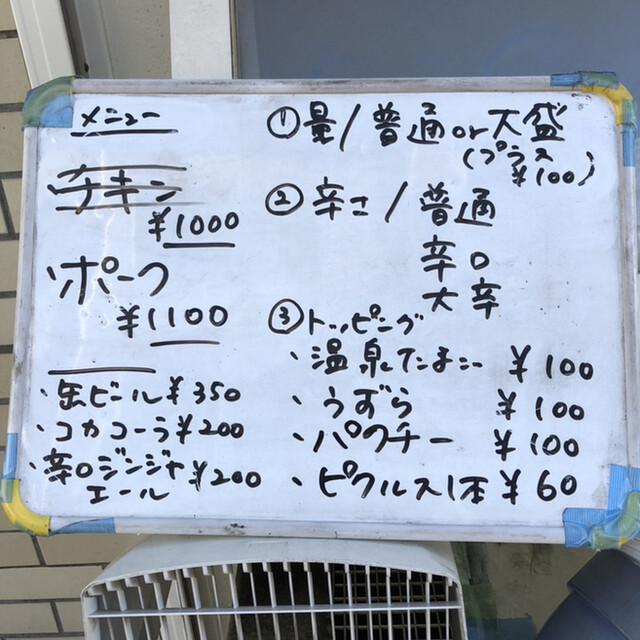 メニュー
・チキン
¥1000
・ポーク
¥1100
・缶ビール ¥350
・コカコーラ ¥200
・辛口ジンジャエール ¥200
①量/普通or大盛
(プラス
¥100)
②辛さ/普通
辛口
大辛
③トッピング
・温泉たまごー ¥100
・うずら ¥100
・パクチー ¥100
・ピクルス1本 ¥60